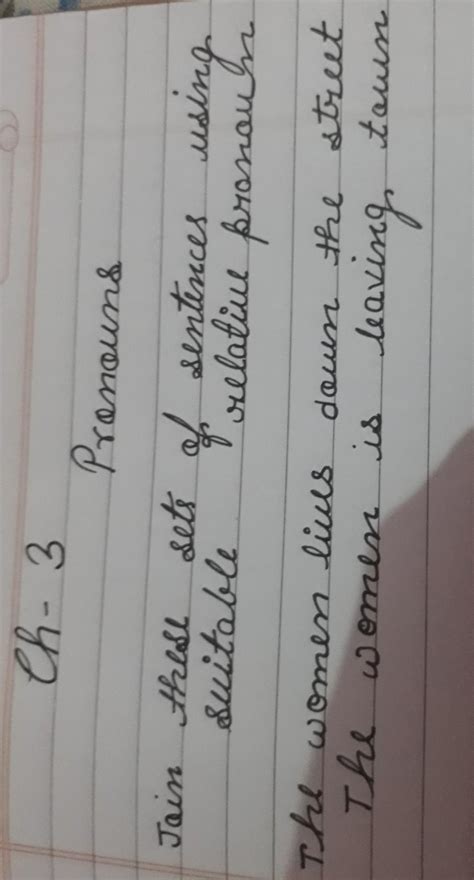 Ch - 3
Pronouns
Join these sets of sentences using
suitable relative pronoun
The women lives down the street
The women is leaving town